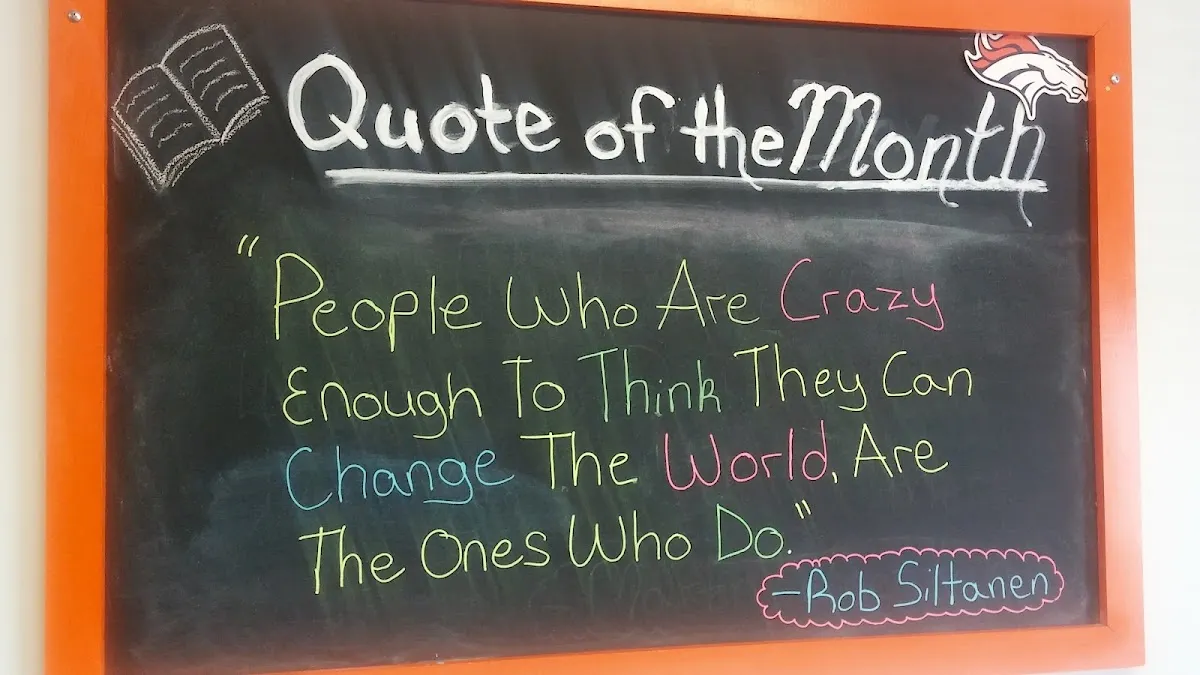 Quote of the Month
"People Who Are Crazy
Enough To Think They Can
Change The World, Are
The Ones Who Do."
-Rob Siltanen